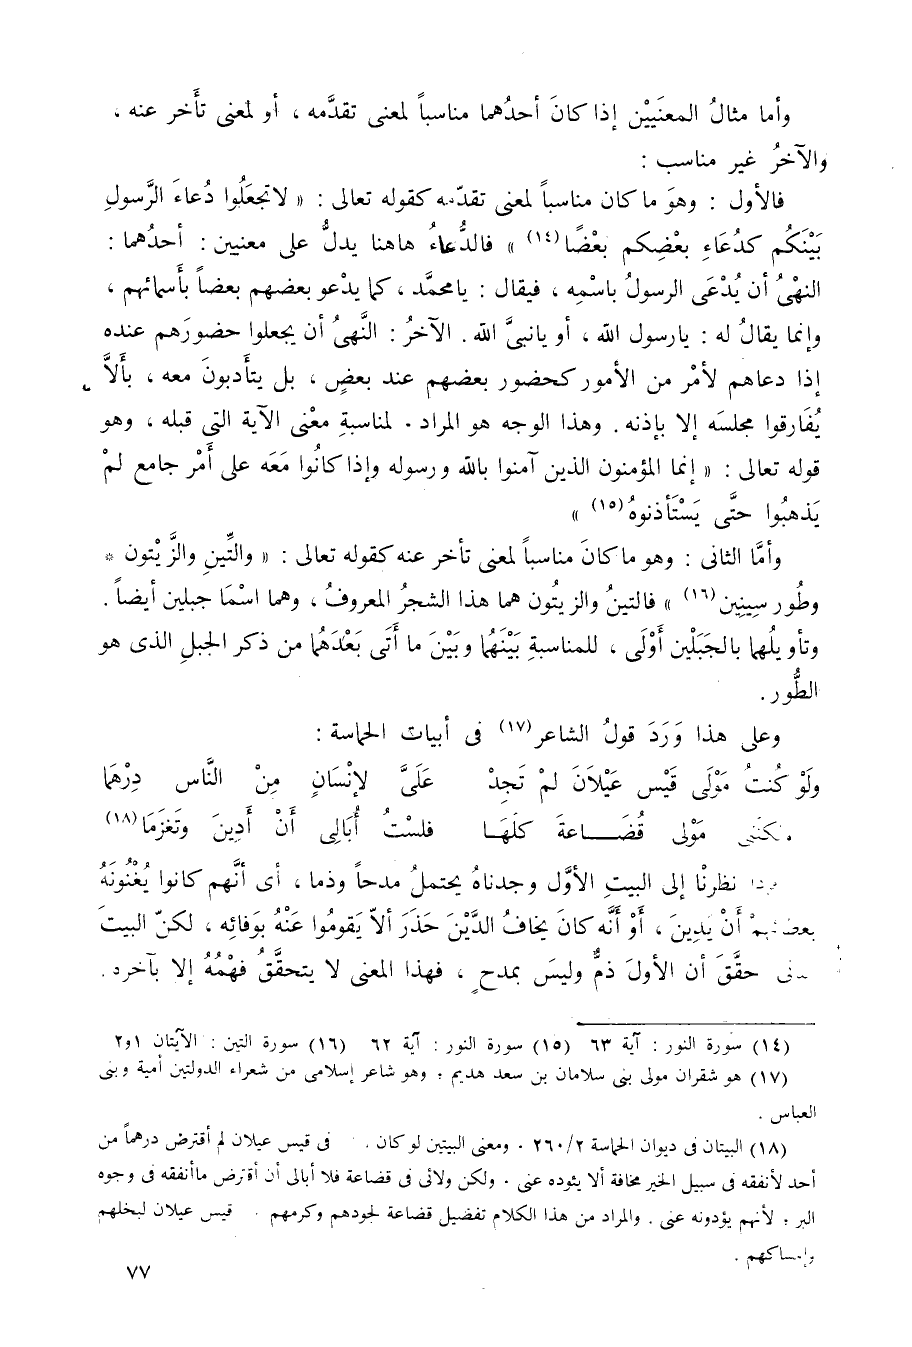 وأما مثالُ المعنَيَيْن إذا كانَ أحدُهما مناسباً لمعنى تقدَّمه ، أو لمعنى تأَخر عنه ،
والآخرُ غير مناسب :
فالأول : وهوَ ما كان مناسباً لمعنى تقدّمه كقوله تعالى : « لا تجعَلُوا دُعاءَ الرَّسولِ
بَيْنَكُم كدُعَاءِ بعْضِكم بعْضًا (١٤) » فالدُّعاءُ هاهنا يدلُّ على معنيين : أحدُهما :
النهْىُ أن يُدْعَى الرسولُ باسْمِه ، فيقال : يامحمَّد ، كما يدْعو بعضهم بعضاً بأَسمائهم ،
وإنما يقالُ له : يارسول الله ، أو يانبىَّ الله . الآخرُ : النَّهىُ أن يجعلوا حضورَهم عنده
إذا دعاهم لأمْر من الأمور كحضور بعضهم عند بعضٍ ، بل يتأَدبونَ معه ، بأَلاَّ
يُفَارقوا مجلسَه إلا بإذنه . وهذا الوجه هو المراد . لمناسبةِ معْنى الآية التى قبله ، وهو
قوله تعالى : « إنما المؤمنون الذين آمنوا بالله ورسوله وإذا كانُوا مَعَه على أمْر جامع لمْ
يَذهبُوا حتَّى يَسْتَأذنوهُ (١٥) »
وأمَّا الثانى : وهو ما كانَ مناسباً لمعنى تأخر عنه كقوله تعالى : « والتِّينِ والزَّيْتون *
وطُور سِينِين (١٦) » فالتينُ والزيتُون هما هذا الشجرُ المعروفُ ، وهما اسْمَا جبلين أيضاً .
وتأويلُهما بالجَبَلْين أوْلَى ، للمناسبةِ بَيْنَهُما وبَيْنَ ما أتَى بَعْدَهُما من ذكر الجبلِ الذى هو
الطُّور .
وعلى هذا وَرَدَ قولُ الشاعر (١٧) فى أبيات الحماسة :
ولَوْ كُنتُ مَوْلَى قَيْس عَيْلاَنَ لمْ تَجِدْ عَلَىَّ لإنْسَانٍ مِنْ النَّاس دِرْهَما
كنَّنى مَوْلى قُضَــاعةَ كلِّهَـا فلسْتُ أُبَالِى أَنْ أَدِينَ وتَغرَمَا (١٨)
نظرنْا إلى البيتِ الأوَّل وجدناهُ يحتملُ مدحاً وذما ، أى أنَّهم كانوا يُغْنُونَهُ
بعضهمْ أَنْ يَدِينَ ، أَوْ أنَّه كانَ يخافُ الدَّيْنَ حَذَرَ ألاّ يَقومُوا عَنْهُ بوَفائِه ، لكنّ البيتَ
حقَّقَ أن الأولَ ذمٌّ وليسَ بمدحٍ ، فهذا المعنى لا يتحقَّقُ فهْمُهُ إلا بآخره .
(١٤) سورة النور : آية ٦٣ (١٥) سورة النور : آية ٦٢ (١٦) سورة التين : الآيتان ١و٢
(١٧) هو شقران مولى بنى سلامان بن سعد هديم ، وهو شاعر إسلامى من شعراء الدولتين أمية وبنى
العباس .
(١٨) البيتان فى ديوان الحماسة ٢٦٠/٢ . ومعنى البيتين لو كان . فى قيس عيلان لم أقترض درهماً من
أحد لأنفقه فى سبيل الخير مخافة ألا يئوده عنى . ولكن ولائى فى قضاعة فلا أبالى أن أقترض ما أنفقه فى وجوه
البر ؛ لأنهم يؤدونه عنى . والمراد من هذا الكلام تفضيل قضاعة لجودهم وكرمهم . قيس عيلان لبخلهم
وإمساكهم .
٧٧